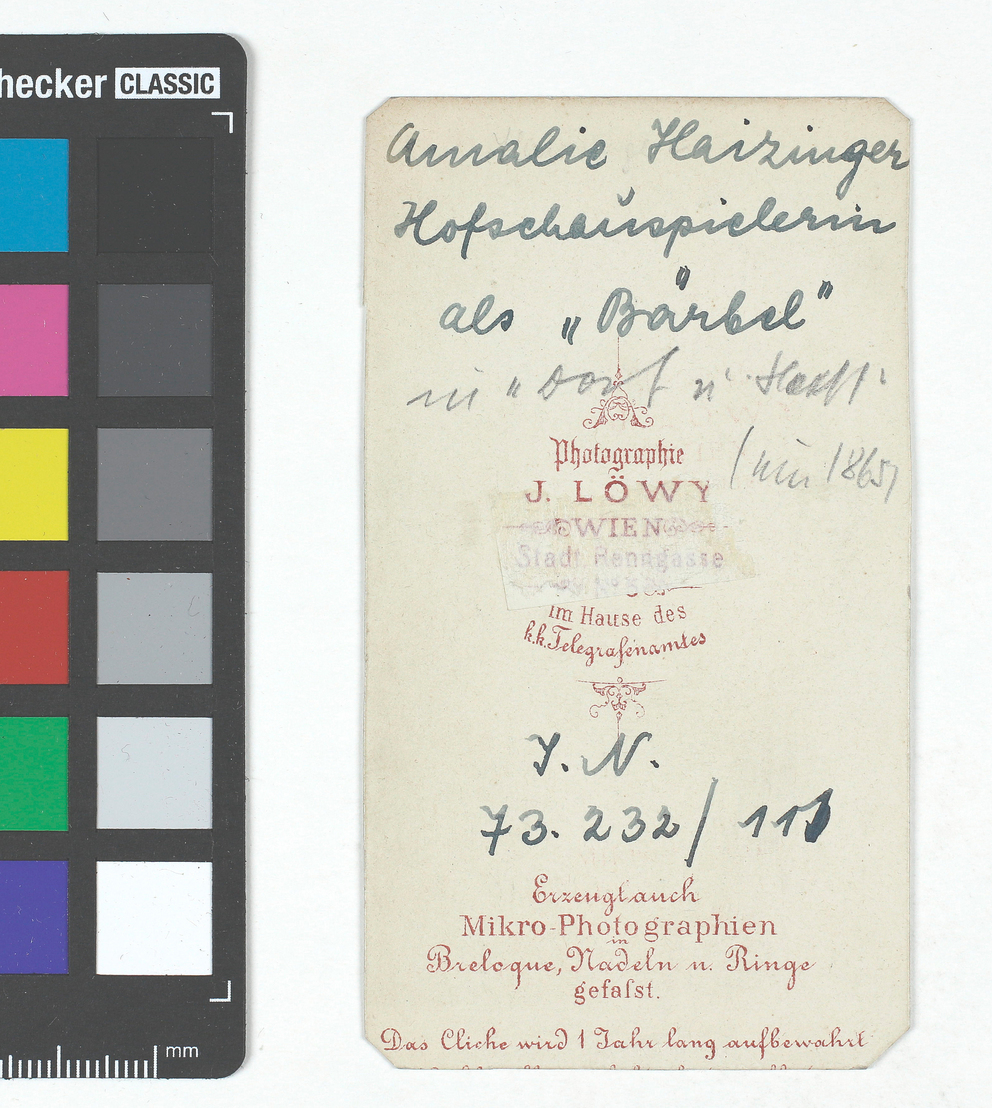 hecker CLASSIC
Amalie Haizinger
Hofschauspielerin
als „Bärbel"
in "Dorf u.
Photographie
J. LÖWY
(um 1865)
WIEN
Stadt, Renngasse
im Hause des
k.k. Telegrafenamtes
J. N.
73.232/111
Erzeugt auch
Mikro-Photographien
in
Breloque, Nadeln u. Ringe
gefaſst.
Das Cliche wird 1 Jahr lang aufbewahrt
mm